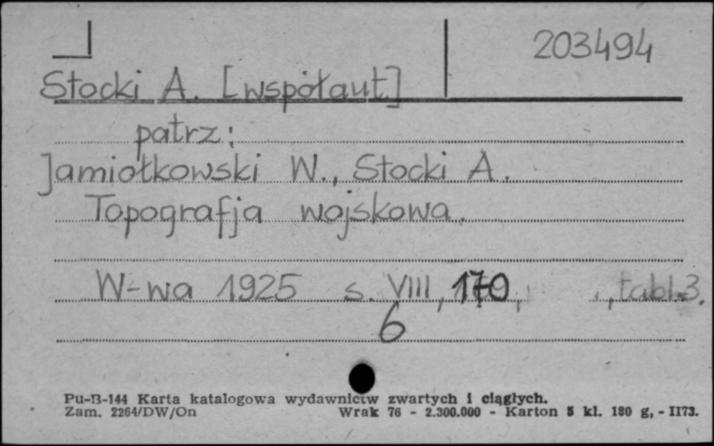 203494
Stocki A. [współaut]
patrz:
Jamiołkowski W., Stocki A.
Topografja wojskowa.
W-wa 1925 s. VIII, 170, , tabl. 3.
6
Pu-B-144 Karta katalogowa wydawnictw zwartych i ciągłych.
Zam. 2264/DW/On Wrak 76 - 2.300.000 - Karton 5 kl. 180 g, - II73.